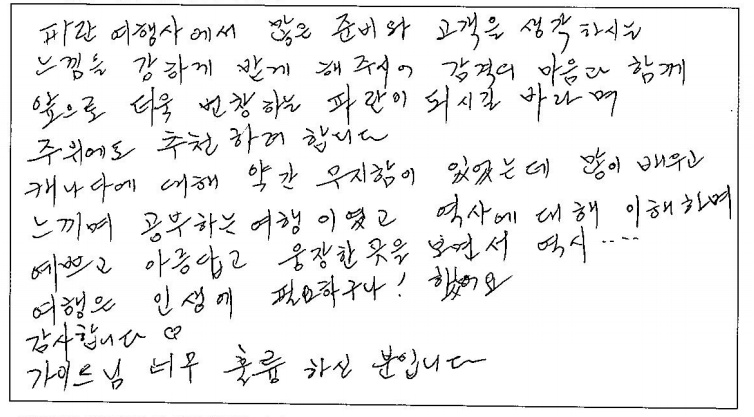 파란 여행사에서 많은 준비와 고객을 생각하시는
느낌을 강하게 받게 해주시어 감격의 마음과 함께
앞으로 더욱 번창하는 파란이 되시길 바라며
주위에도 추천하려 합니다
캐나다에 대해 약간 무지함이 있었는데 많이 배우고
느끼며 공부하는 여행이였고 역사에 대해 이해하며
예쁘고 아름답고 웅장한 곳을 보면서 역시.....
여행은 인생에 필요하구나! 했어요
감사합니다 ♡
가이드님 너무 훌륭하신 분입니다